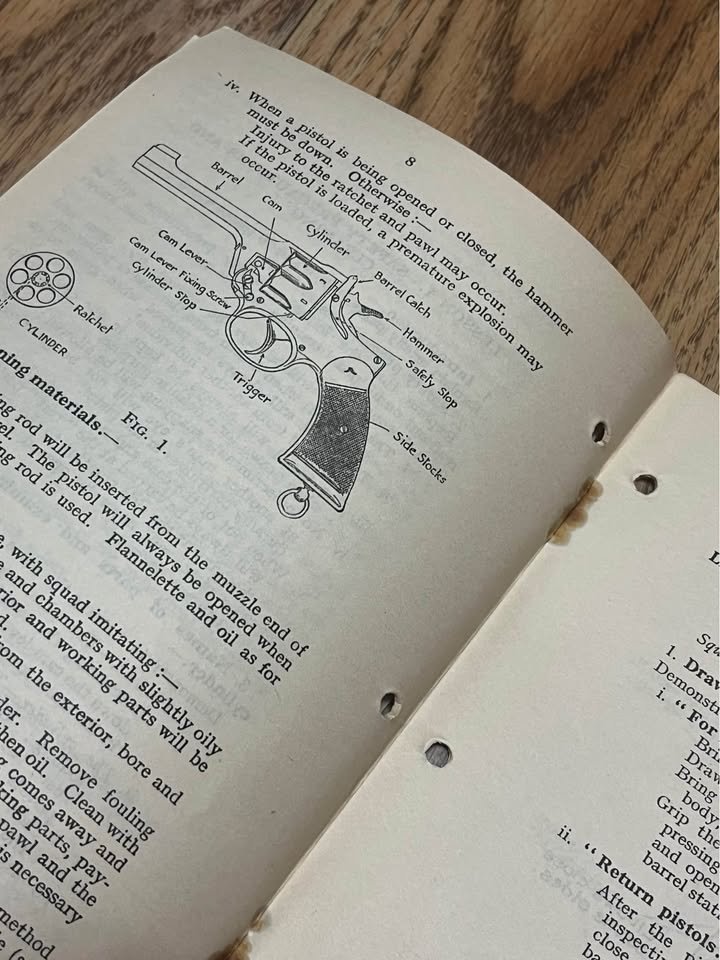 8
iv. When a pistol is being opened or closed, the hammer
must be down. Otherwise :—
Injury to the ratchet and pawl may occur.
If the pistol is loaded, a premature explosion may
occur.
Barrel
Cam
Cylinder
Cam Lever
Cam Lever Fixing Screw
Cylinder Stop
Barrel Catch
Hammer
Safety Stop
Trigger
Side Stocks
Ratchet
CYLINDER
FIG. 1.
ning materials.—
ing rod will be inserted from the muzzle end of
rel. The pistol will always be opened when
ing rod is used. Flannelette and oil as for
e, with squad imitating :—
e and chambers with slightly oily
rior and working parts will be
d.
from the exterior, bore and
der. Remove fouling
then oil. Clean with
g comes away and
king parts, pay-
pawl and the
is necessary
method
L
Squ
1. Draw
Demonst
i. “ For
Bri
Draw
Bring
body
Grip the
pressing
and open
barrel stat
ii. “ Return pistols.
After the pi
inspecti
close
ba